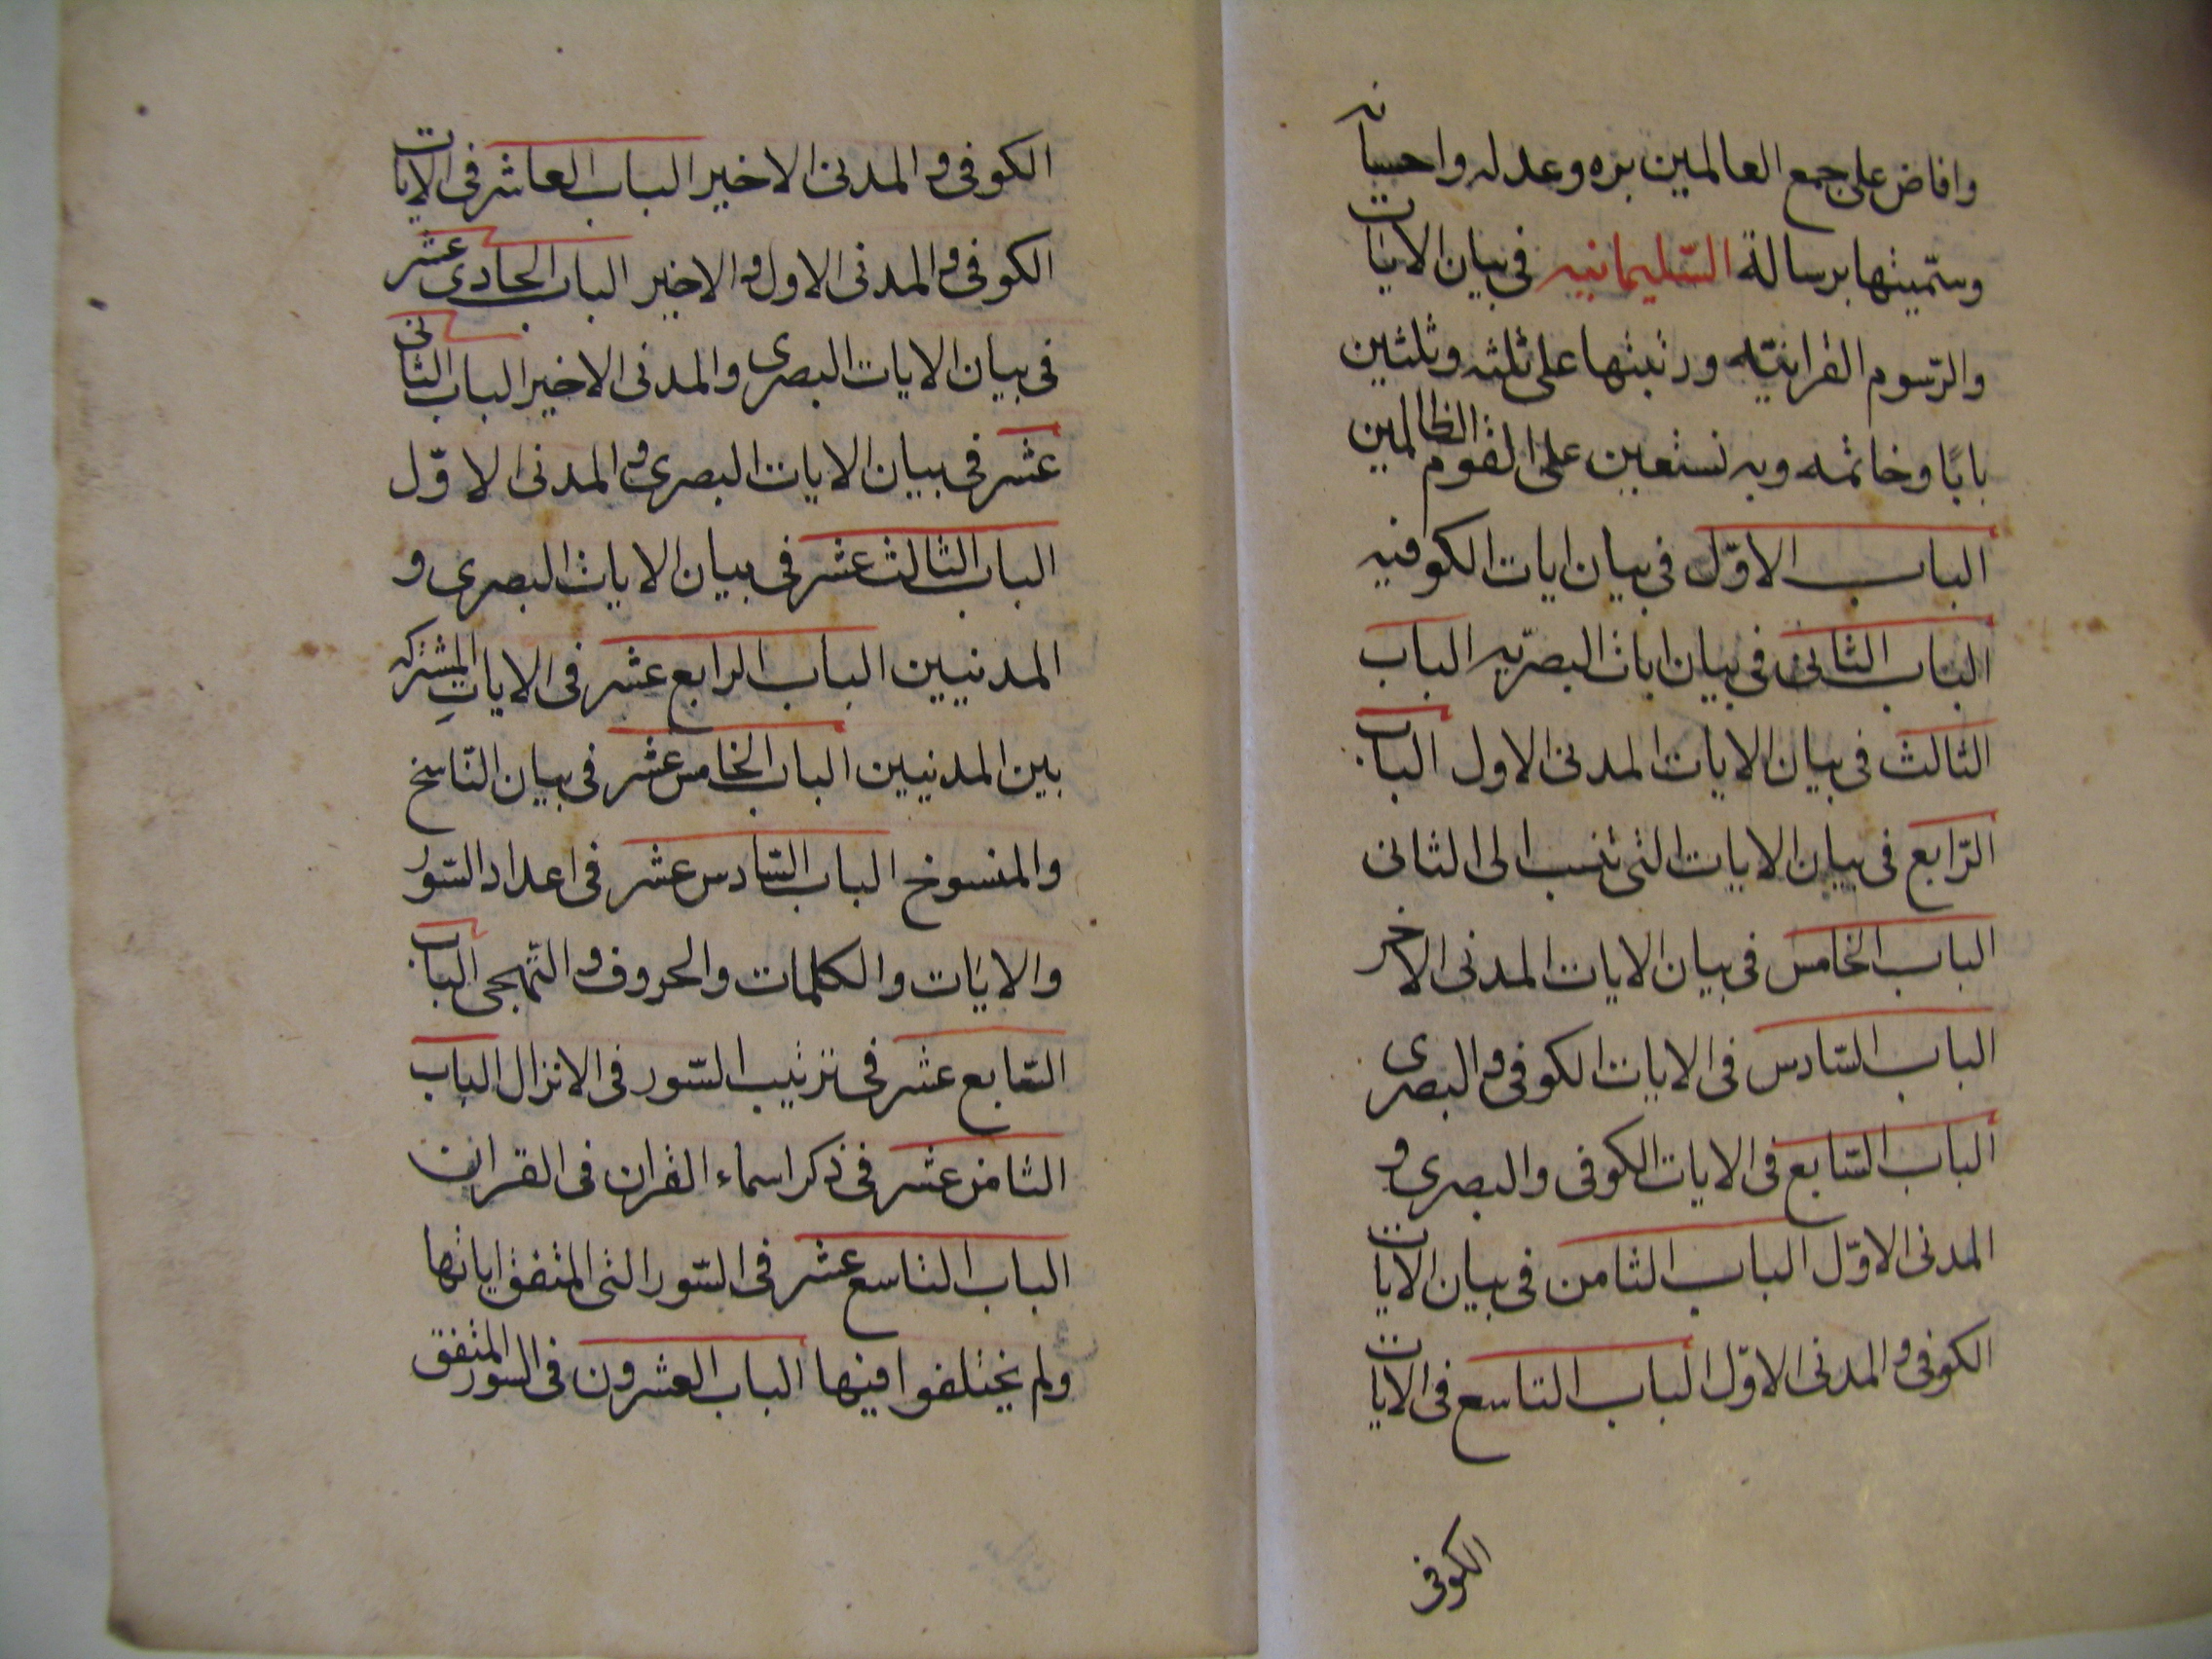 وافاض على جمع العالمين بره وعدله واحسانه
وسمّيتها برسالة السّليمانيه فى بيان الايات
والرّسوم القرانيّه ورتبتها على ثلثه وثلثين
بابًا وخاتمه وبه نستعين على القوم الظالمين
الباب الاوّل فى بيان ايات الكوفيه
الباب الثانى فى بيان ايات البصرّيه الباب
الثالث فى بيان الايات المدنى الاول الباب
الرّابع فى بيان الايات التى تنسب الى الثانى
الباب الخامس فى بيان الايات المدنى الاخر
الباب السّادس فى الايات الكوفى و البصرى
الباب السّابع فى الايات الكوفى والبصرى و
المدنى الاوّل الباب الثامن فى بيان الايات
الكوفى و المدنى الاوّل الباب التاسع فى الايات
الكوفى
الكوفى و المدنى الاخير الباب العاشر فى الايات
الكوفى و المدنى الاول و الاخير الباب الحادى عشر
فى بيان الايات البصرى والمدنى الاخير الباب الثانى
عشر فى بيان الايات البصرى و المدنى الاوّل
الباب الثالث عشر فى بيان الايات البصرى و
المدنيين الباب الرابع عشر فى الايات المشتركه
بين المدنيين الباب الخامس عشر فى بيان النّاسخ
والمنسوخ الباب السّادس عشر فى اعداد السّور
والايات والكلمات والحروف و التّهجى الباب
السّابع عشر فى ترتيب السّور فى الانزال الباب
الثامن عشر فى ذكر اسماء القران فى القران
الباب التاسع عشر فى السّور التى المتفق اياتها
ولم يختلفوا فيها الباب العشرون فى السور المتفق